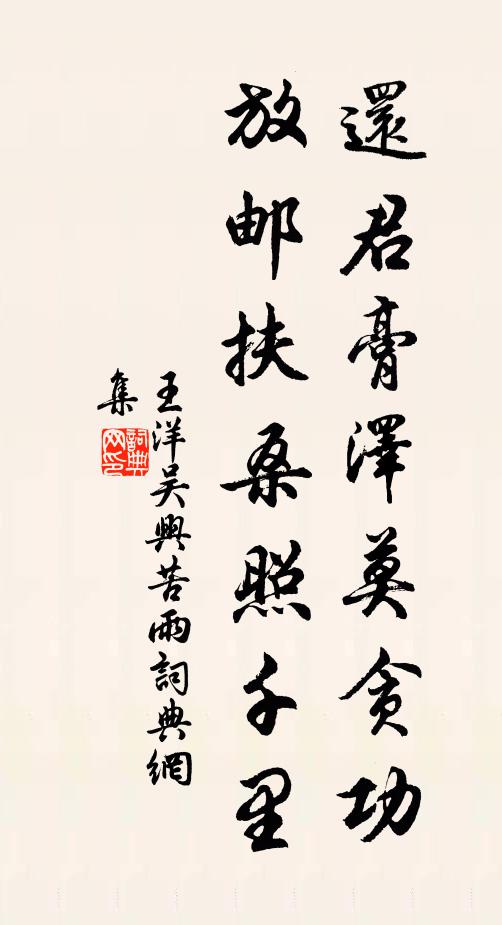 還君膏澤莫貪功
放邮扶桑照千里
王洋吴興苦雨詞典網
集
詞典
网印